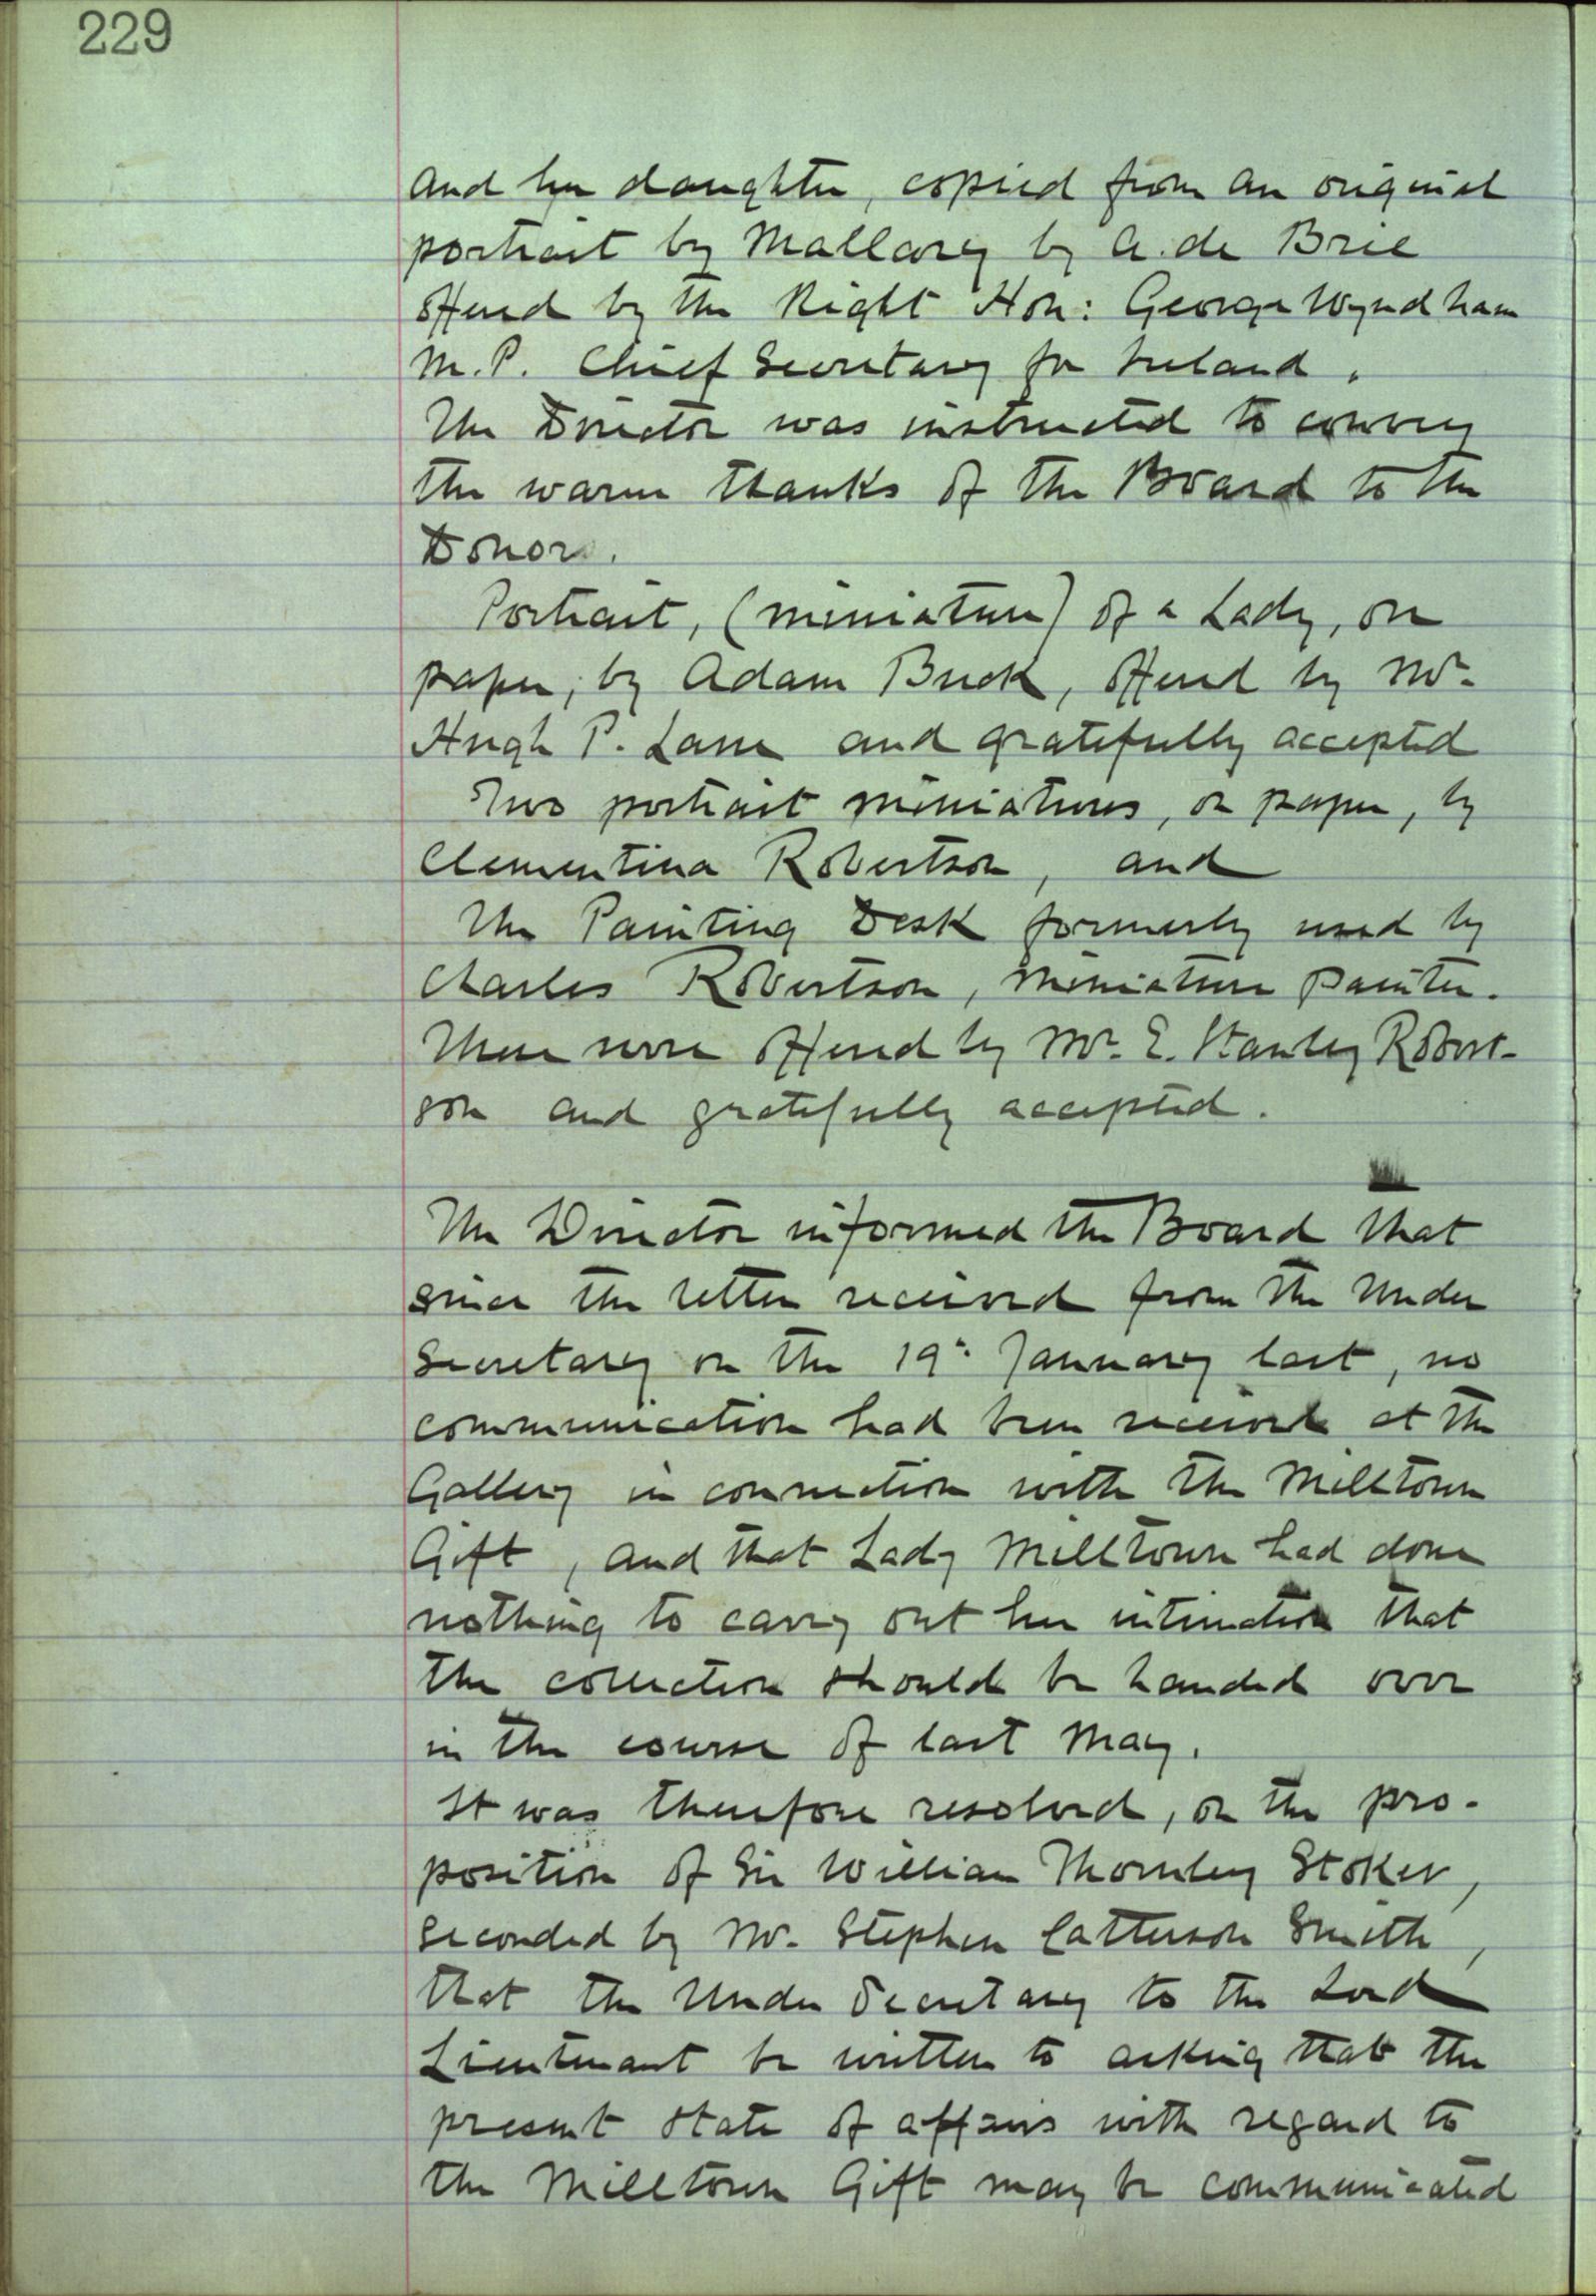 229
and her daughter, copied from an original
portrait by Mallary by A. de Brie
offered by the Right Hon: George Wyndham
M.P. Chief Secretary for Ireland.
The Director was instructed to convey
the warm thanks of the Board to the
Donors.
Portrait, (miniature) of a Lady, on
paper, by Adam Buck, offered by Mr.
Hugh P. Lane and gratefully accepted
Two portrait miniatures, on paper, by
Clementina Robertson, and
The Painting Desk formerly used by
Charles Robertson, miniature painter.
These were offered by Mr. E. Stanley Robert-
son and gratefully accepted.
The Director informed the Board that
since the letter received from the Under
Secretary on the 19th January last, no
communication had been received at the
Gallery in connection with the Milltown
Gift, and that Lady Milltown had done
nothing to carry out her intimation that
the collection should be handed over
in the course of last May.
It was therefore resolved, on the pro-
position of Sir William Thornley Stoker,
seconded by Mr. Stephen Catterson Smith,
that the Under Secretary to the Lord
Lieutenant be written to asking that the
present state of affairs with regard to
the Milltown Gift may be communicated